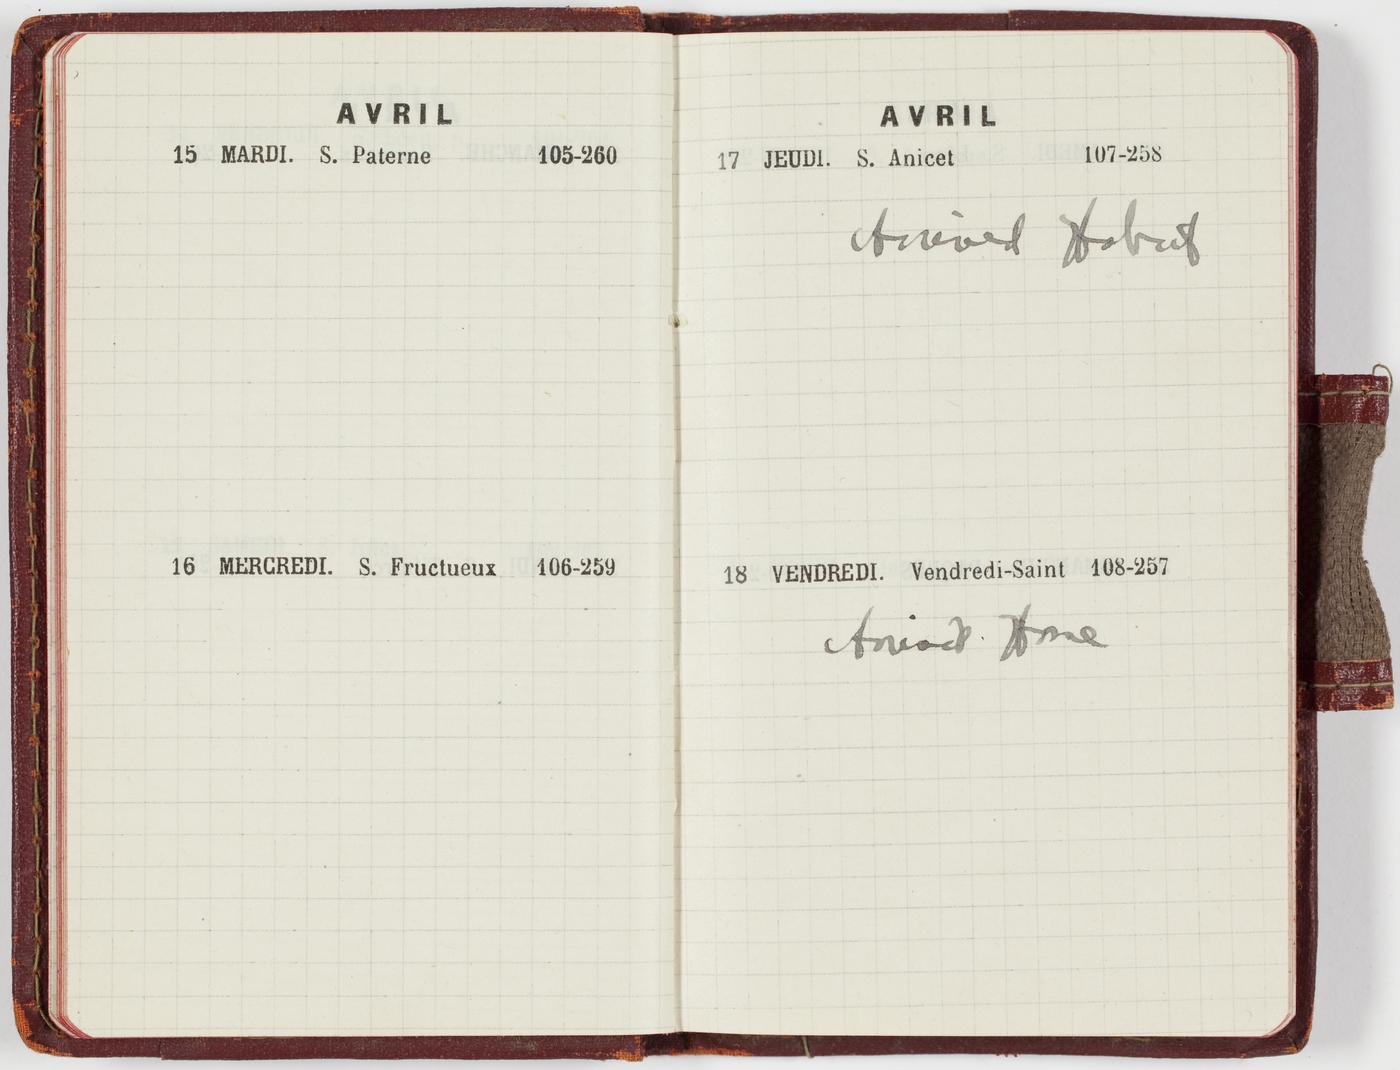 AVRIL
15 MARDI. S. Paterne 105-260
16 MERCREDI. S. Fructueux 106-259
AVRIL
17 JEUDI. S. Anicet 107-258
Arrived Hobart
18 VENDREDI. Vendredi-Saint 108-257
Arrived Home